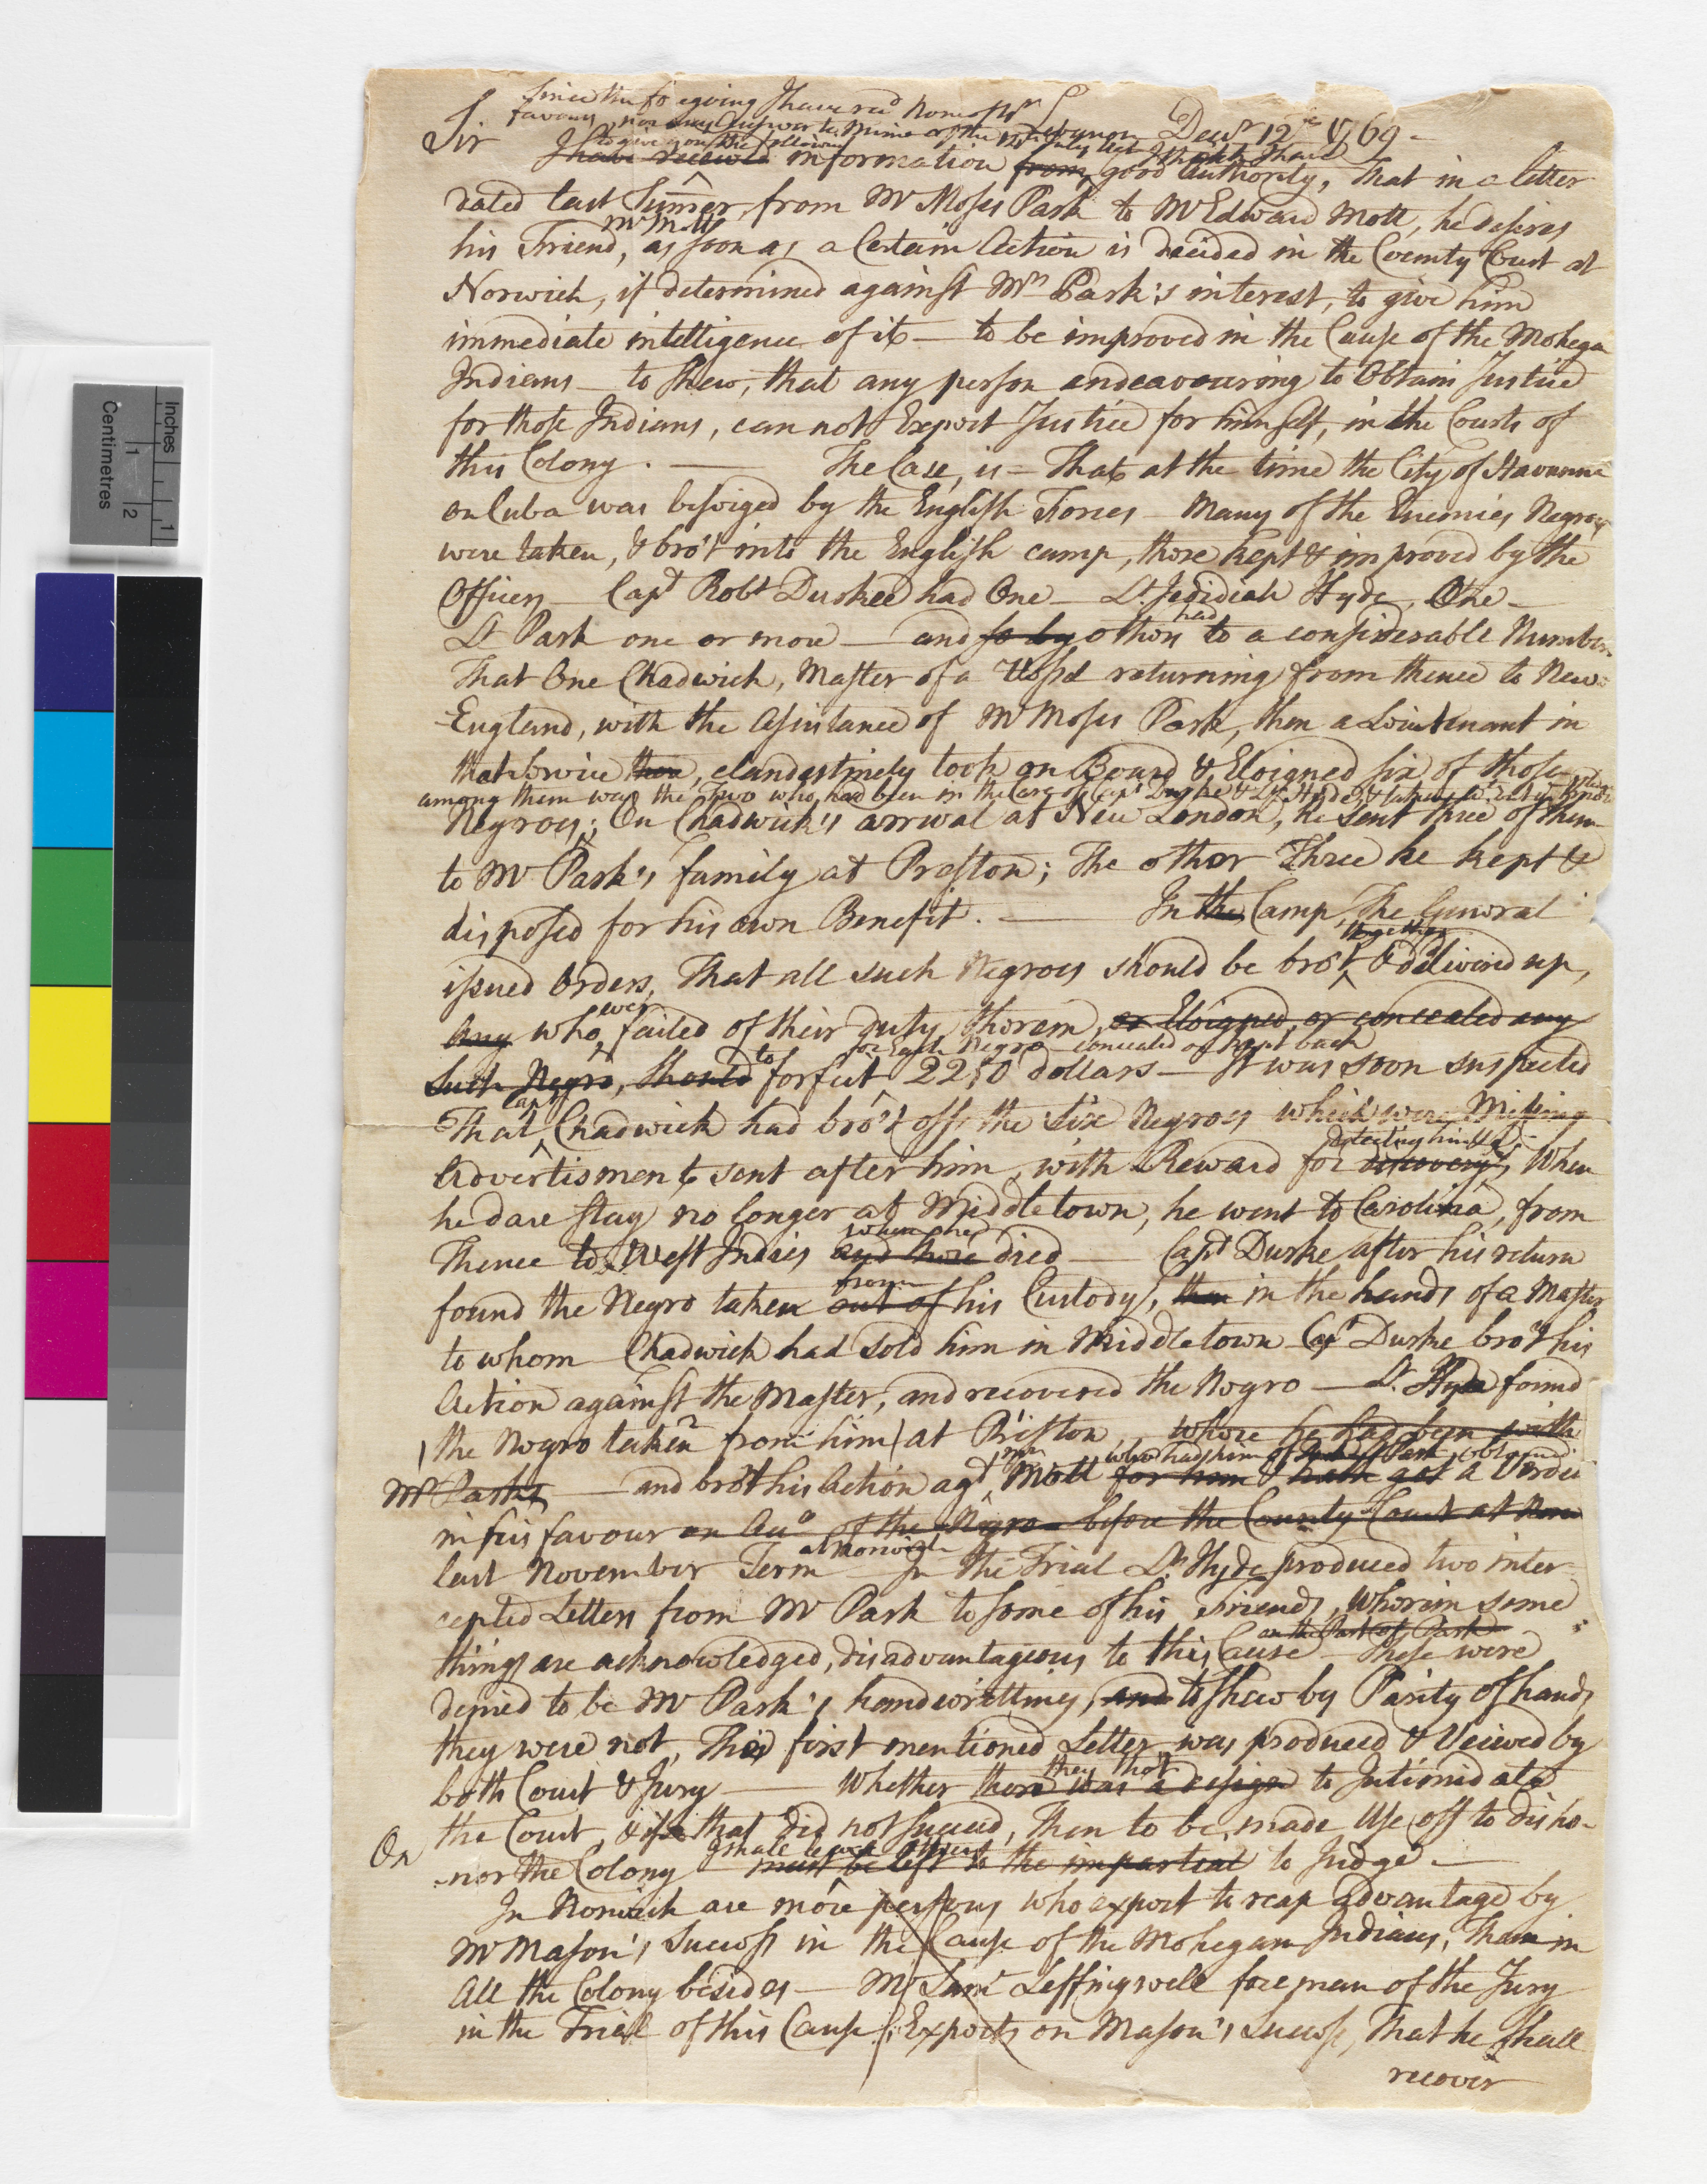 Since the foregoing I have recd none of yr
favours, nor any Answer to mine of the
Lebanon Decr 12th 1769 -
Sir I have received information from good Authority, That in a letter
to give you the following I think I have
dated last Summer, from Mr Moses Park to Mr Edward Mott, he desires
his Friend, Mr Mott as soon as a Certain Action is decided in the County Court at
Norwich, if determined against Mr Park's interest, to give him
immediate intelligence of it — to be improved in the Cause of the Mohegan
Indians — to shew, that any person endeavouring to Obtain Justice
for those Indians, can not Expect Justice for himself, in the Courts of
this Colony. — The Case, is — That at the time the City of Havanna
on Cuba was besieged by the English Forces — Many of the Enemies Negroes
were taken, & bro't into the English camp, there kept & improved by the
Officers — Capt Robt Durkee had One — Lt Jedidiah Hyde, One —
Lt Park one or more — and so by others had to a considerable Number.
That One Chadwick, Master of a Vessel returning from thence to New
-England, with the Assistance of Mr Moses Park, then a Leiutenant in
that service then, clandestinely took on Board & Eloigned six of those
among them was the Two who had been in the Care of Capt Durke & Lt Hyde, & taken
Negroes; On Chadwick's arrival at New London, he sent three of them
to Mr Park's family at Preston; The other Three he kept &
disposed for his own Benefit. — In the Camp, The General
issued Orders, That all such Negroes should be bro't together & delivered up,
Any who ever failed of their duty therein, or Eloigned, or concealed any
for Each Negro concealed or kept back
such Negro, should to forfeit 2250 dollars — It was soon suspected
That Capt Chadwick had bro't off the six Negroes which were Missing
Advertisments sent after him, with Reward for discovery, detecting him &c — When
he dare stay no longer at Middletown, he went to Carolina, from
Thence to West Indies and there where he died — Capt Durke after his return
found the Negro taken out of from his Custody, then in the hands of a Master
to whom Chadwick had sold him in Middletown Capt Durke bro't his
Action against the Master, and recovered the Negro — Lt Hyde found
the Negro taken from him at Preston, where he had been with
Mr Parks — and bro't his Action agt Mr Mott for him & hath got a Verdict
who had him of obtained
in his favour on Acco of the Negro before the County Court at Nor
last November Term at Norwich — In the Trial Lt Hyde produced two inter-
cepted Letters from Mr Park to some of his Friends, wherein some
things are acknowledged, disadvantageous to this Cause on the Part of Park — These were
denied to be Mr Park's handwritting, and to shew by Parity of hands
they were not, This first mentioned Letter was produced & Veiwed by
both Court & Jury — Whether there was a design they thot to Intimidate
the Court, & if that did not succeed, Then to be made Use off to disho-
On
nor the Colony — must be left to the impartial I shall leave others to Judge. —
In Norwich are more persons who expect to reap advantage by
Mr Mason's Success in the Cause of the Mohegan Indians, Than in
All the Colony besides — Mr Saml Leffingwell foreman of the Jury
in the Trial of this Cause, Expects on Mason's success, That he shall
recover